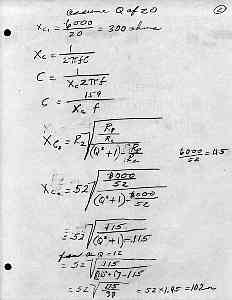 assume Q of 20
②
Xc1 = 6000/20 = 300 ohms
Xc = 1/2πfC
C = 1/Xc2πf
C = 159/Xc f
Xc2 = R2 √((Rp/R2)/((Q²+1) - Rp/R2))
6000/52 = 115
Xc2 = 52 √((6000/52)/((Q²+1) - 6000/52))
= 52 √(115/((Q²+1) - 115))
Q = 12
= 52 √(115/
= 52 √(115/30) = 52 × 1.95 = 102